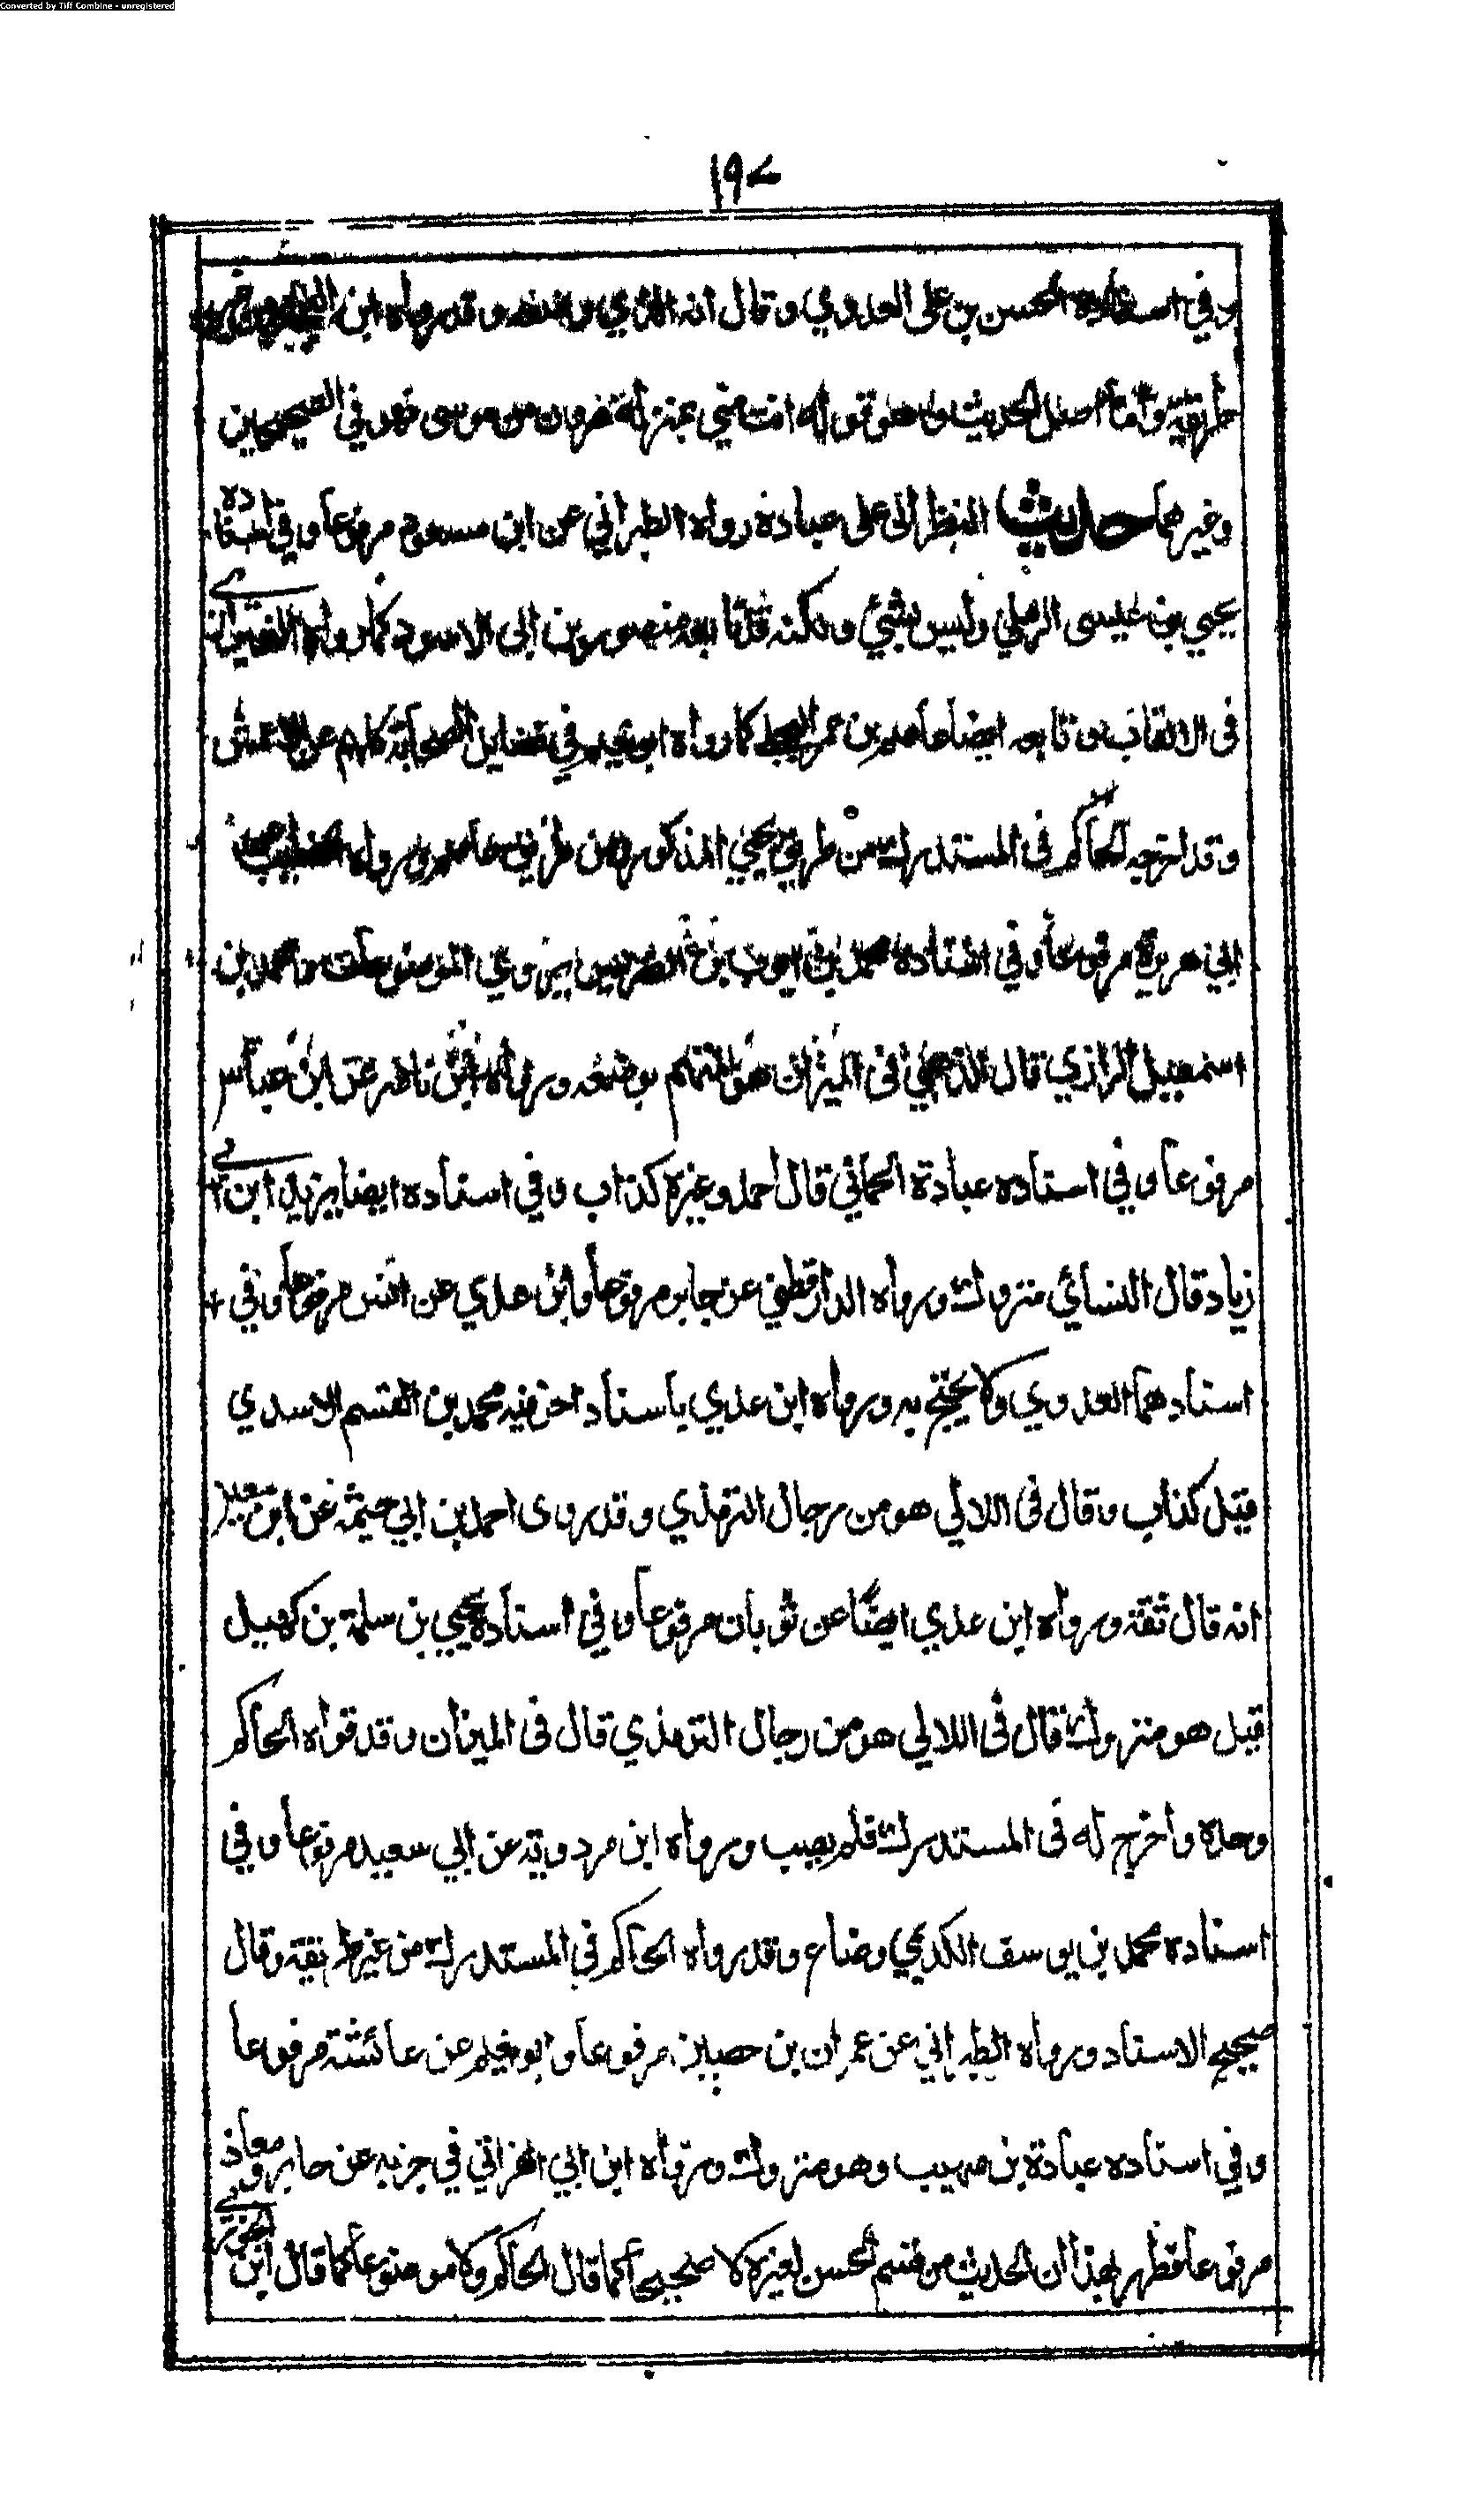 Converted by Tiff Combine - unregistered
١٩٧
وفي اسناده الحسن بن علي العدوي وقال انه الذي وضعه وقد رواه ابن
طريقته واما اصل الحديث وهو قوله انت مني بمنزلة هرون من موسى فهو في الصحيحين
وغيرهما حديث النظر الى علي عبادة رواه الطبراني عن ابن مسعود مرفوعا وفي اسناده
يحيي بن عيسى الرملي وليس بشيء ولكنه قد تابعه منصور بن ابي الاسود كما رواه الشيرازي
في الالقاب وتابعه ايضا عاصم بن عمر البجلي كما رواه ابو نعيم في فضايل الصحابة كلهم عن الاعمش
وقد اخرجه الحاكم في المستدرك من طريق يحيي المذكور ومن طريق عاصم ورواه الخطيب عن
ابي هريرة مرفوعا وفي اسناده محمد بن ايوب بن الضريس يروي الموضوعات ومحمد بن
اسمعيل الرازي قال الذهبي في الميزان هو المتهم بوضعه ورواه ابن ناصر عن ابن عباس
مرفوعا وفي اسناده عبادة الحماني قال احمد وغيره كذاب وفي اسناده ايضا يزيد ابن ابي
زياد قال النسائي متروك ورواه الدارقطني عن جابر مرفوعا وابن عدي عن انس مرفوعا وفي
اسنادهما العدوي ولا يحتج به ورواه ابن عدي باسناد اخر فيه محمد بن القسم الاسدي
قيل كذاب وقال في اللالي هو من رجال الترمذي وقد روى احمد بن ابي خيثمه عن ابن معين
انه قال ثقة ورواه ابن عدي ايضا عن ثوبان مرفوعا وفي اسناده يحيي بن سلمة بن كهيل
قيل هو متروك قال في اللالي هو من رجال الترمذي قال في الميزان وقد قواه الحاكم
وحده واخرج له في المستدرك فلم يصب ورواه ابن مردويه عن ابي سعيد مرفوعا وفي
اسناده محمد بن يوسف الكديمي وضاع وقد رواه الحاكم في المستدرك من غير طريقة وقال
صحيح الاسناد ورواه الطبراني عن عمران بن حصين مرفوعا وابو نعيم عن عائشة مرفوعا
وفي اسناده عبادة بن صهيب وهو متروك ورواه ابن ابي الفراتي في جزبه عن جابر ومعاذ
مرفوعا فظهر بهذا ان الحديث من قسم الحسن لغيره لا صحيحا كما قال الحاكم ولا موضوعا كما قال ابن الجوزي